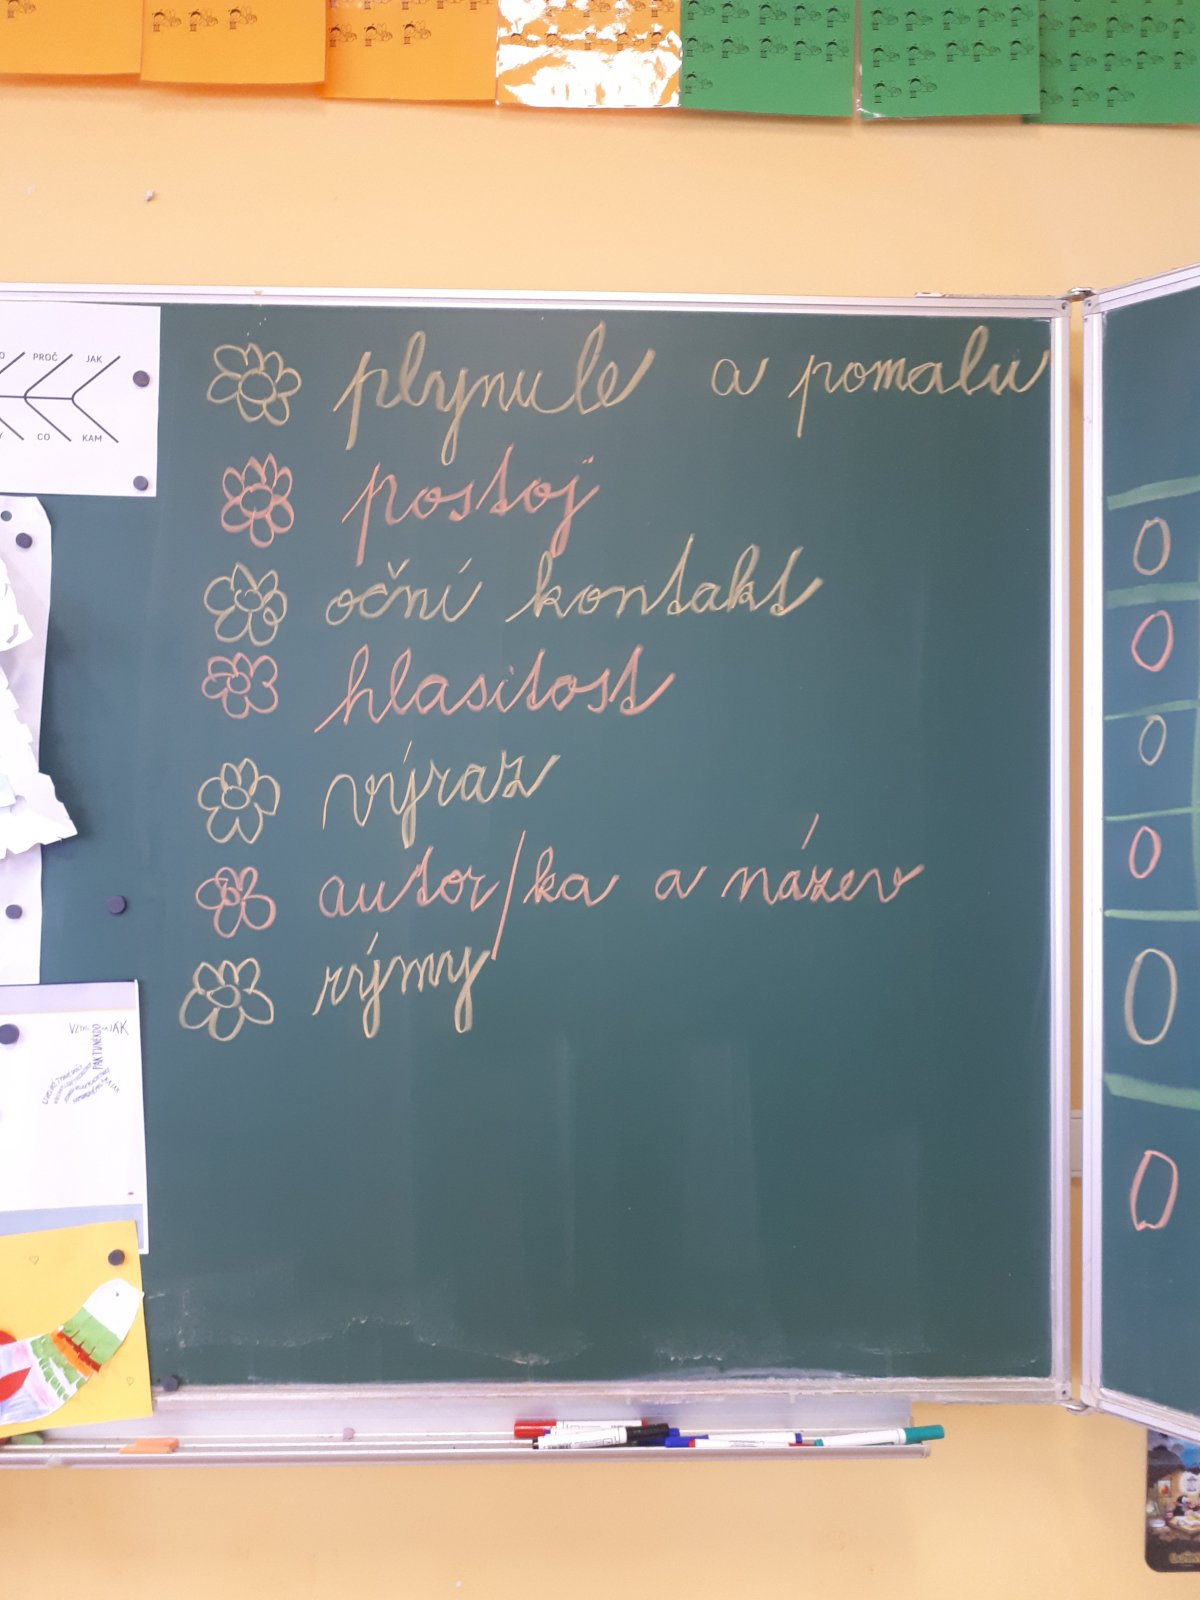 PROČ JAK
CO KAM
plynule a pomalu
postoj
oční kontakt
hlasitost
výraz
autor/ka a název
rýmy
PAK TU NĚKDO
0
0
0
0
0
0